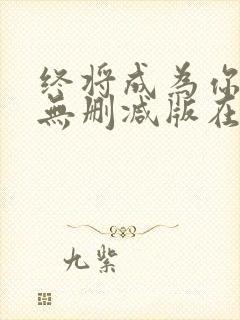 终将成为你
無删减版在
九紫